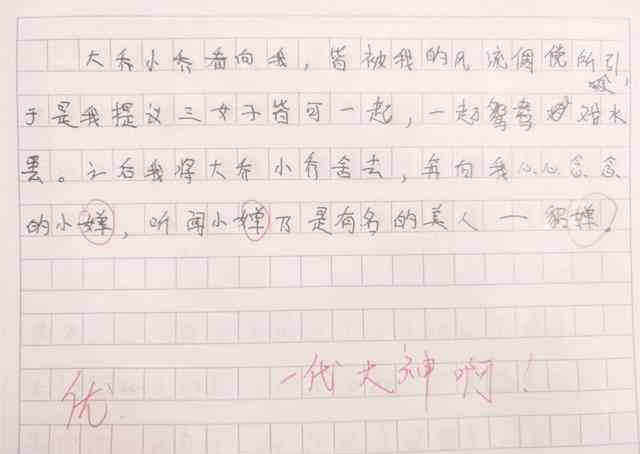 大乔小乔看向我，皆被我的风流倜傥所引
于是我提议三女子皆可一起，一起鸳鸯
罢。之后我将大乔小乔舍去，奔向我心心念念
的小婵，听闻小婵乃是有名的美人一貂婵。
优
一代大神啊！